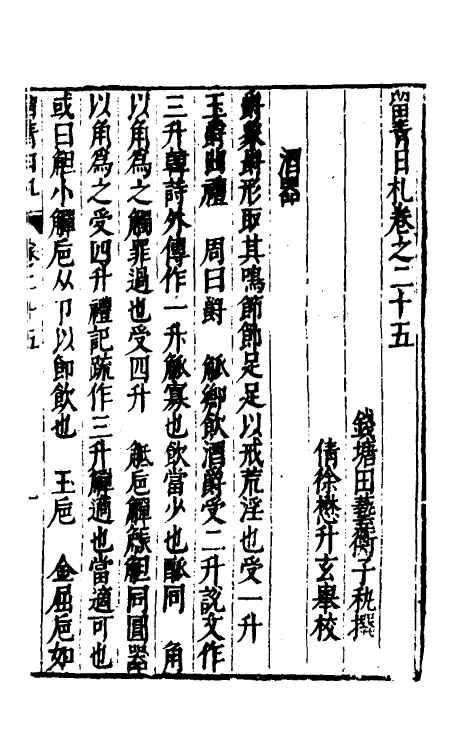 留青日札卷之二十五
錢塘田藝蘅子秇撰
倩徐懋升玄舉校
酒器
爵象爵形取其鳴節節足足以戒荒淫也受一升
玉爵曲禮　周曰爵　觚鄉飲酒爵受二升說文作
三升韓詩外傳作一升觚寡也飲當少也酙同　角
以角爲之觸罪過也受四升　觝巵觶觴觛同圓器
以角爲之受四升禮記疏作三升觶適也當適可也
或曰觛小觶巵从卪以節飲也　玉巵　金屈巵如
留青日札　卷二十五　一